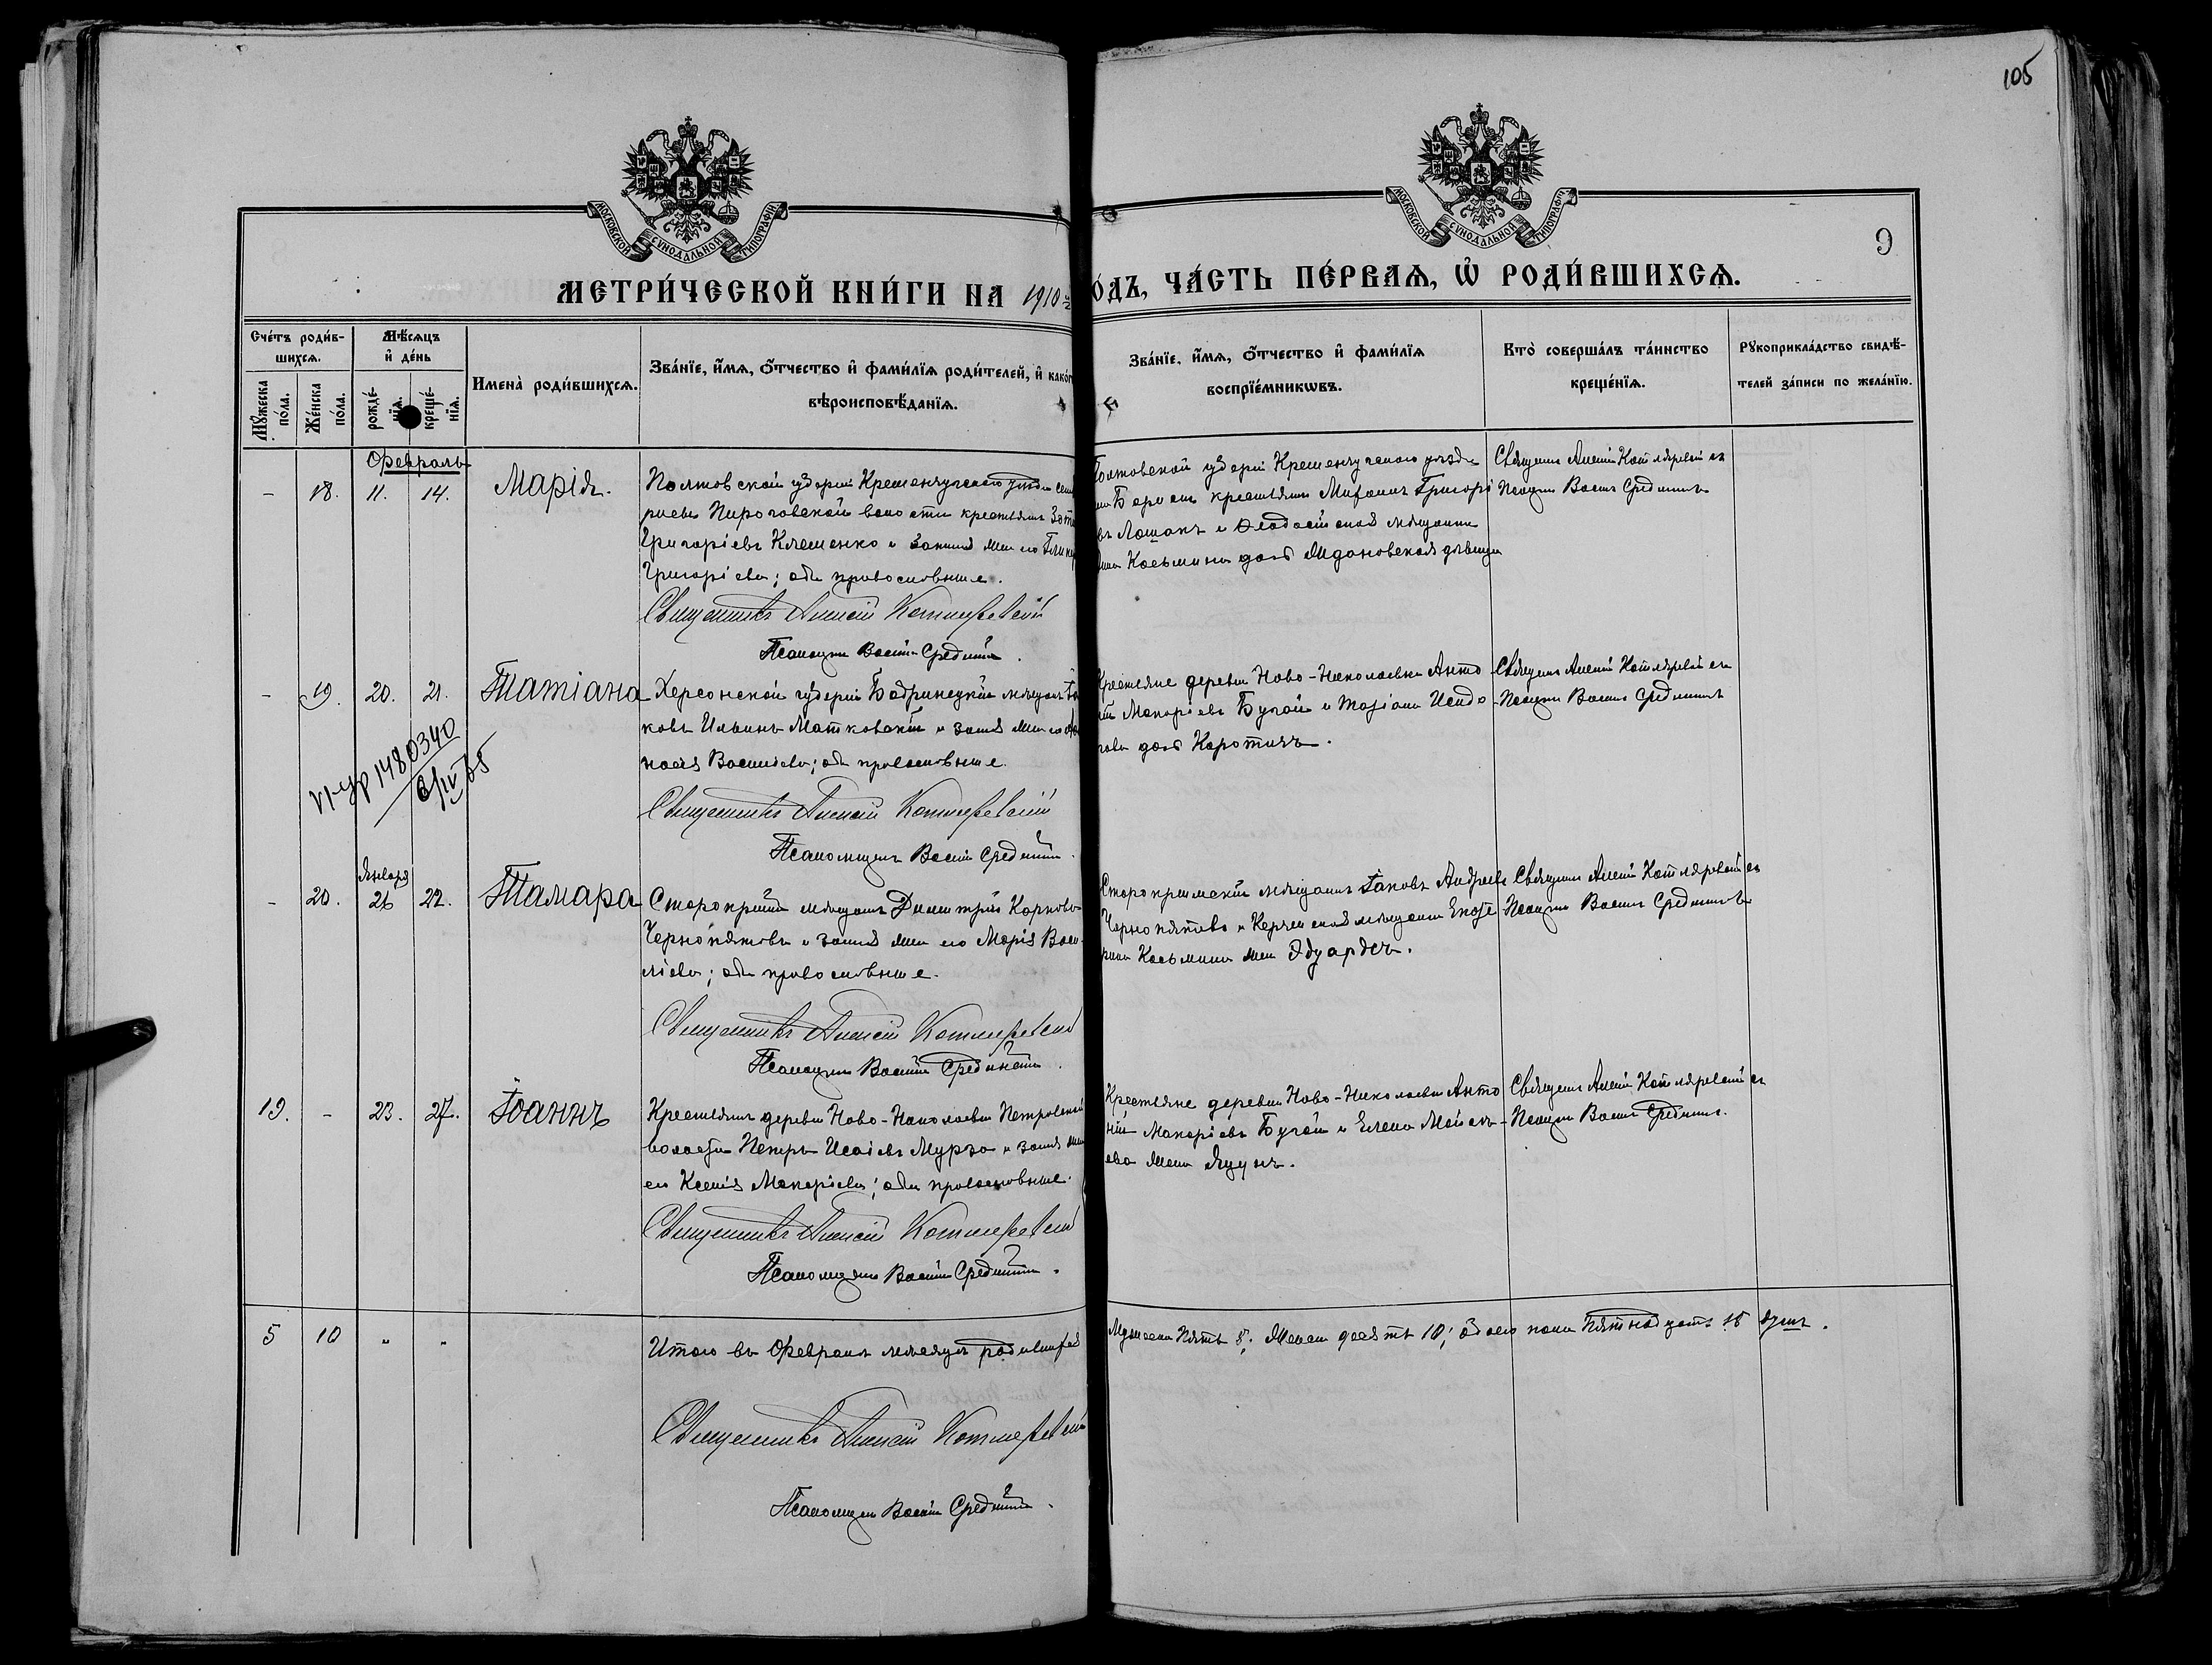 105
МОСКОВСКОЙ СУНОДАЛЬНОЙ ТИПОГРАФІИ
МОСКОВСКОЙ СУНОДАЛЬНОЙ ТИПОГРАФІИ
9
МЕТРИ́ЧЕСКОЙ КНИ́ГИ НА 1910
О́ДЪ, ЧА́СТЬ ПЕ́РВАѦ, Ѡ҆ РОДИ́ВШИХСѦ.
Сче́тъ роди́в-
шихсѧ.
Мѣ́сѧцъ
и҆ де́нь
Мꙋ́жеска по́ла.
Же́нска по́ла.
рожде́нїѧ.
креще́нїѧ.
Имена̀ роди́вшихсѧ.
Зва́нїе, и҆́мѧ, ѻ҆́тчество и҆ фами́лїѧ роди́телей, и҆ како́г
вѣроисповѣ́данїѧ.
Зва́нїе, и҆́мѧ, ѻ҆́тчество и҆ фами́лїѧ
воспрїе́мникѡвъ.
Кто̀ соверша́лъ та́инство
креще́нїѧ.
Рꙋкоприкла́дство свидѣ́-
телей за́писи по жела́нїю.
Февраль
- 18. 11. 14. Марія.
Полтовской губерніи Кременчугскаго уѣзда
Пироговской волости крестьянинъ
Григоріевъ Клеменко и законная жена его
Григоріева; оба православные.
Священникъ Алексій Котляревскій
Псаломщикъ Василій Срединскій
Полтовской губерніи Кременчугскаго уѣзда
крестьянинъ Григорі
въ Лошакъ и Ѳеодосійская мѣщанка
Косьмина дочь Ждановская дѣвица
Священ. Алексій Котляревскій съ
Псаломщ. Васил. Срединскимъ
- 19. 20. 21. Татіана
Херсонской губерніи Бобринецкій мѣщанинъ
ковъ Ильинъ Матковскій и закон. жена его
насія Васильева; оба православные.
Священникъ Алексій Котляревскій
Псаломщикъ Василій Срединскій.
Крестьяне деревни Ново-Николаевки Анто
ній Макаріевъ Бугай и Исидо
рова дочь Коротичъ.
Священ. Алексій Котляревскій съ
Псаломщ. Васил. Срединскимъ
1480340
6/IV 65
Января
- 20. 26 22. Тамара
Старокрымскій мѣщанинъ Димитрій Карпов
Чернопятовъ и закон. жена его Марія Васи-
ліева; оба православные.
Священникъ Алексій Котляревскій
Псаломщикъ Василій Срединскій.
Старокрымскій мѣщанинъ Іаковъ Андреевъ
Чернопятовъ и Керченская мѣщанка Екате
рина Косьмина жена Эдуардсъ.
Священ. Алексій Котляревскій съ
Псаломщ. Васил. Срединскимъ
19. - 23. 27. Іоаннъ
Крестьянинъ деревни Ново-Николаевки Петровской
волости Петръ Исаіевъ Мурза и закон. жена
его Ксенія Макаріева; оба православные.
Священникъ Алексій Котляревскій
Псаломщикъ Василій Срединскій.
Крестьяне деревни Ново-Николаевки Анто
ній Макаріевъ Бугай и Елена Моисе
ева жена Яцунъ.
Священ. Алексій Котляревскій съ
Псаломщ. Васил. Срединскимъ.
5 10 " "
Итого въ Февралѣ мѣсяцѣ родившихся
Мужеска пять 5; Женска десять 10; обоего пола пятнадцать 15 душъ.
Священникъ Алексій Котляревскій
Псаломщикъ Василій Срединскій.